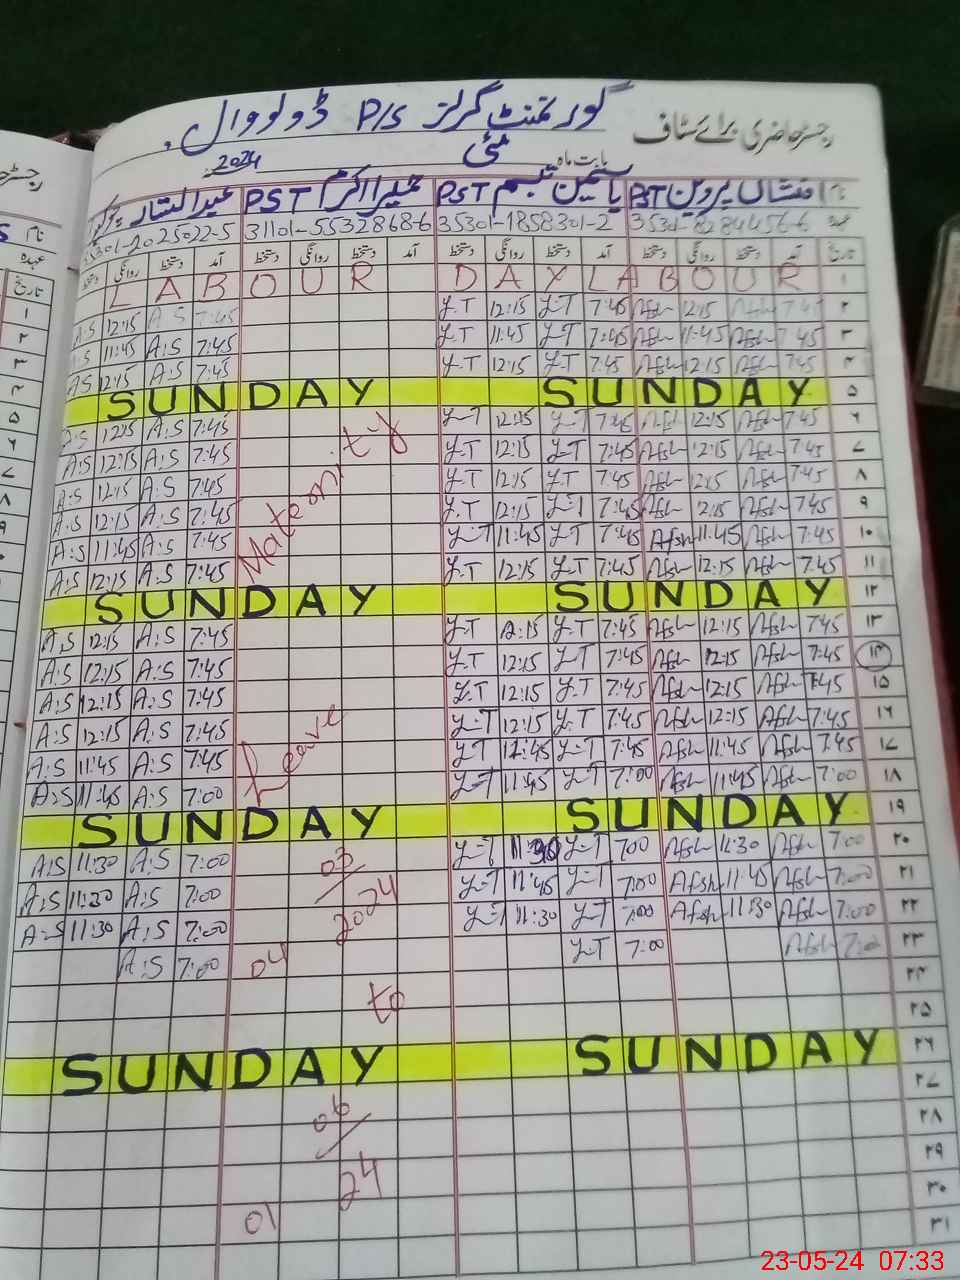 رجسٹر حاضری برائے سٹاف گورنمنٹ گرلز P/S ڈولووال
بابت ماہ مئی 2024
نام افشاں پروین PST یاسمین تبسم PST حمیرا اکرم PST عبدالستار
عہدہ 35301-8284456-6 35301-1858301-2 31101-5532868-6 35301-2025022-5
تاریخ آمد دستخط روانگی دستخط آمد دستخط روانگی دستخط آمد دستخط روانگی دستخط آمد دستخط روانگی دستخط
LABOUR DAY LABOUR ۱
A:S 12:15 A:S 7:45 Y.T 12:15 Y.T 7:45 Afsh 12:15 Afsh 7:45 ۲
A:S 11:45 A:S 7:45 Y.T 11:45 Y.T 7:45 Afsh 11:45 Afsh 7:45 ۳
A:S 12:15 A:S 7:45 Y.T 12:15 Y.T 7:45 Afsh 12:15 Afsh 7:45 ۴
SUNDAY SUNDAY ۵
A:S 12:15 A:S 7:45 Y.T 12:15 Y.T 7:45 Afsh 12:15 Afsh 7:45 ۶
A:S 12:15 A:S 7:45 Y.T 12:15 Y.T 7:45 Afsh 12:15 Afsh 7:45 ۷
A:S 12:15 A:S 7:45 Y.T 12:15 Y.T 7:45 Afsh 12:15 Afsh 7:45 ۸
A:S 12:15 A:S 7:45 Y.T 12:15 Y.T 7:45 Afsh 12:15 Afsh 7:45 ۹
A:S 11:45 A:S 7:45 Maternity Y.T 11:45 Y.T 7:45 Afsh 11:45 Afsh 7:45 ۱۰
A:S 12:15 A:S 7:45 Y.T 12:15 Y.T 7:45 Afsh 12:15 Afsh 7:45 ۱۱
SUNDAY SUNDAY ۱۲
A:S 12:15 A:S 7:45 Y.T 12:15 Y.T 7:45 Afsh 12:15 Afsh 7:45 ۱۳
A:S 12:15 A:S 7:45 Y.T 12:15 Y.T 7:45 Afsh 12:15 Afsh 7:45 ۱۴
A:S 12:15 A:S 7:45 Y.T 12:15 Y.T 7:45 Afsh 12:15 Afsh 7:45 ۱۵
A:S 12:15 A:S 7:45 Y.T 12:15 Y.T 7:45 Afsh 12:15 Afsh 7:45 ۱۶
A:S 11:45 A:S 7:45 Leave Y.T 11:45 Y.T 7:45 Afsh 11:45 Afsh 7:45 ۱۷
A:S 11:45 A:S 7:00 Y.T 11:45 Y.T 7:00 Afsh 11:45 Afsh 7:00 ۱۸
SUNDAY SUNDAY ۱۹
A:S 11:30 A:S 7:00 03 Y.T 11:30 Y.T 7:00 Afsh 11:30 Afsh 7:00 ۲۰
A:S 11:20 A:S 7:00 2024 Y.T 11:45 Y.T 7:00 Afsh 11:45 Afsh 7:00 ۲۱
A:S 11:30 A:S 7:00 Y.T 11:30 Y.T 7:00 Afsh 11:30 Afsh 7:00 ۲۲
A:S 7:00 04 Y.T 7:00 Afsh 7:00 ۲۳
to ۲۴
۲۵
SUNDAY SUNDAY ۲۶
۲۷
06 ۲۸
24 ۲۹
۳۰
01 ۳۱
23-05-24 07:33